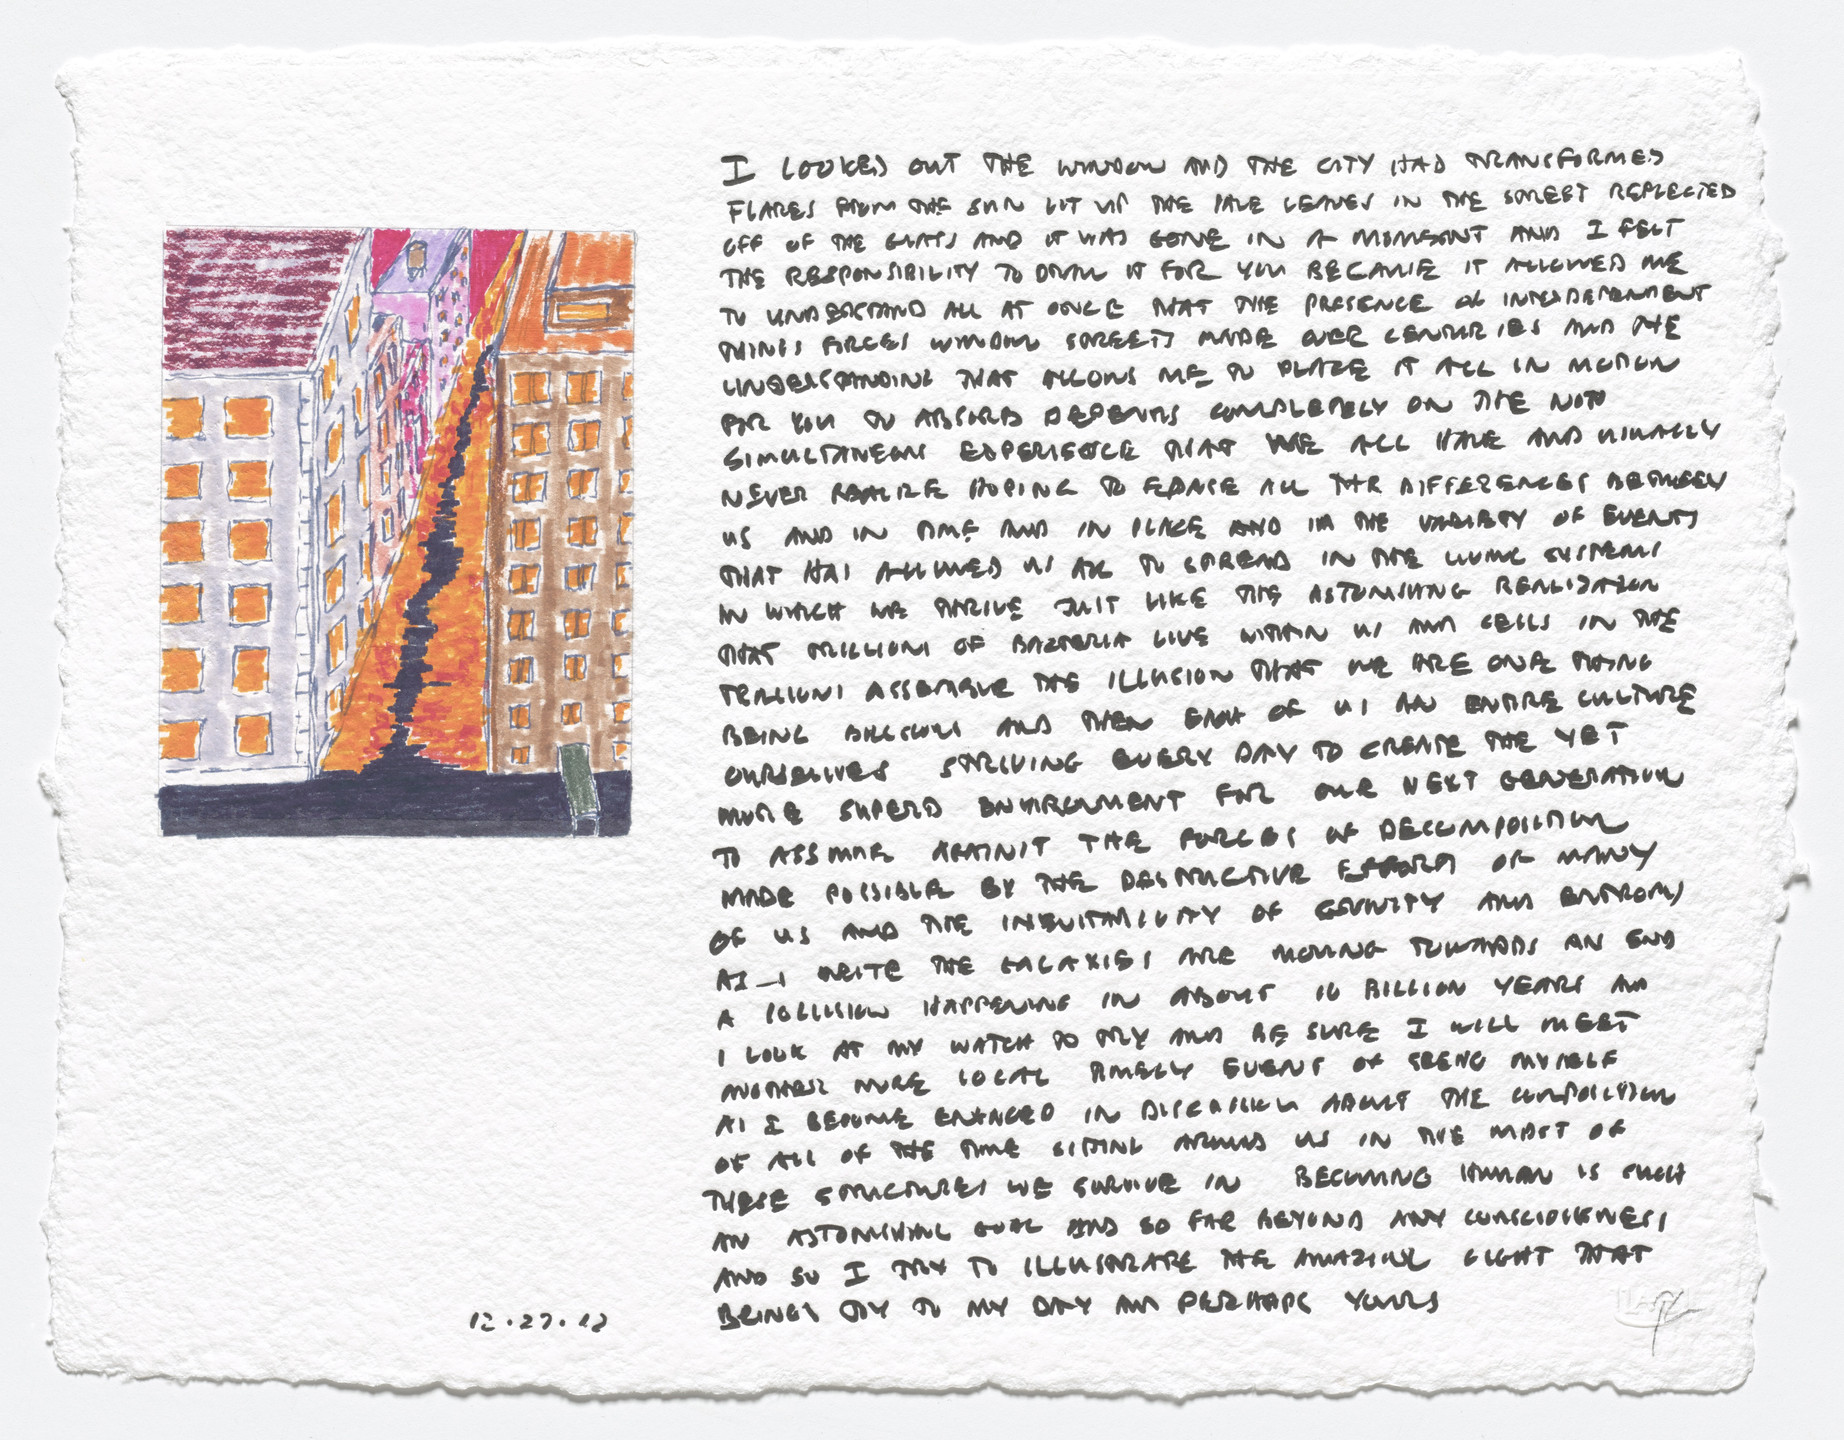 I LOOKED OUT THE WINDOW AND THE CITY HAD TRANSFORMED
FLARES FROM THE SUN LIT UP THE PALE LEAVES IN THE STREET REFLECTED
OFF OF THE GLASS AND IT WAS GONE IN A MOMENT AND I FELT
THE RESPONSIBILITY TO DRAW IT FOR YOU BECAUSE IT ALLOWED ME
TO UNDERSTAND ALL AT ONCE THAT THE PRESENCE OF INTERDEPENDENT
THINGS FORCES WINDOW STREETS MADE OVER CENTURIES AND THE
UNDERSTANDING THAT ALLOWS ME TO PLACE IT ALL IN MOTION
FOR YOU TO ABSORB DEPENDS COMPLETELY ON THE NON
SIMULTANEOUS EXPERIENCE THAT WE ALL HAVE AND USUALLY
NEVER REALIZE HOPING TO ERASE ALL THE DIFFERENCES BETWEEN
US AND IN TIME AND IN PLACE AND IN THE VARIETY OF EVENTS
THAT HAS ALLOWED US ALL TO SPREAD IN THE LIVING SYSTEMS
IN WHICH WE THRIVE JUST LIKE THE ASTONISHING REALIZATION
THAT MILLIONS OF BACTERIA LIVE WITHIN US AND CELLS IN THE
TRILLIONS ASSEMBLE THE ILLUSION THAT WE ARE ONE THING
BEING BILLIONS AND THEN EACH OF US AN ENTIRE CULTURE
OURSELVES STRIVING EVERY DAY TO CREATE THE YET
MORE SUPERB ENVIRONMENT FOR OUR NEXT GENERATION
TO ASSUME AGAINST THE FORCES OF DECOMPOSITION
MADE POSSIBLE BY THE DESTRUCTIVE EFFORTS OF MANY
OF US AND THE INEVITABILITY OF GRAVITY AND ENTROPY
AS I WRITE THE GALAXIES ARE MOVING TOWARDS AN END
A COLLISION HAPPENING IN ABOUT 10 BILLION YEARS AND
I LOOK AT MY WATCH TO TRY AND BE SURE I WILL MEET
ANOTHER MORE LOCAL TIMELY EVENT OF SEEING MYSELF
AS I BECOME ENGAGED IN DISCUSSION ABOUT THE COMPOSITION
OF ALL OF THE TIME SITTING AROUND US IN THE MIDST OF
THESE STRUCTURES WE SURVIVE IN BECOMING HUMAN IS SUCH
AN ASTONISHING GOAL AND SO FAR BEYOND ANY CONSCIOUSNESS
AND SO I TRY TO ILLUSTRATE THE AMAZING LIGHT THAT
BRINGS JOY TO MY DAY AND PERHAPS YOURS
12.27.12